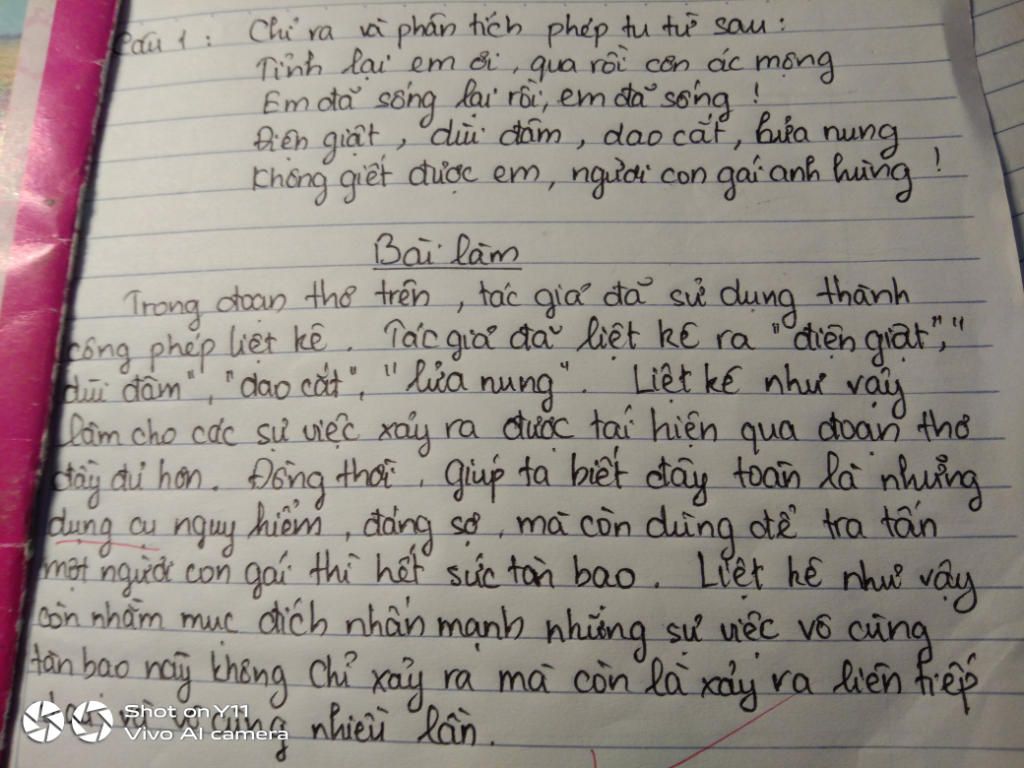 Câu 1: Chỉ ra và phân tích phép tu từ sau:
Tỉnh lại em ơi, qua rồi cơn ác mộng
Em đã sống lại rồi, em đã sống!
Điện giật, dùi đâm, dao cắt, lửa nung
Không giết được em, người con gái anh hùng!
Bài làm
Trong đoạn thơ trên, tác giả đã sử dụng thành
công phép liệt kê. Tác giả đã liệt kê ra "điện giật", "
dùi đâm", "dao cắt", "lửa nung". Liệt kê như vậy
làm cho các sự việc xảy ra được tái hiện qua đoạn thơ
đầy đủ hơn. Đồng thời, giúp ta biết đây toàn là những
dụng cụ nguy hiểm, đáng sợ, mà còn dùng để tra tấn
một người con gái thì hết sức tàn bạo. Liệt kê như vậy
còn nhằm mục đích nhấn mạnh những sự việc vô cùng
tàn bạo này không chỉ xảy ra mà còn là xảy ra liên tiếp
và vô cùng nhiều lần.
Shot on Y11
Vivo AI camera